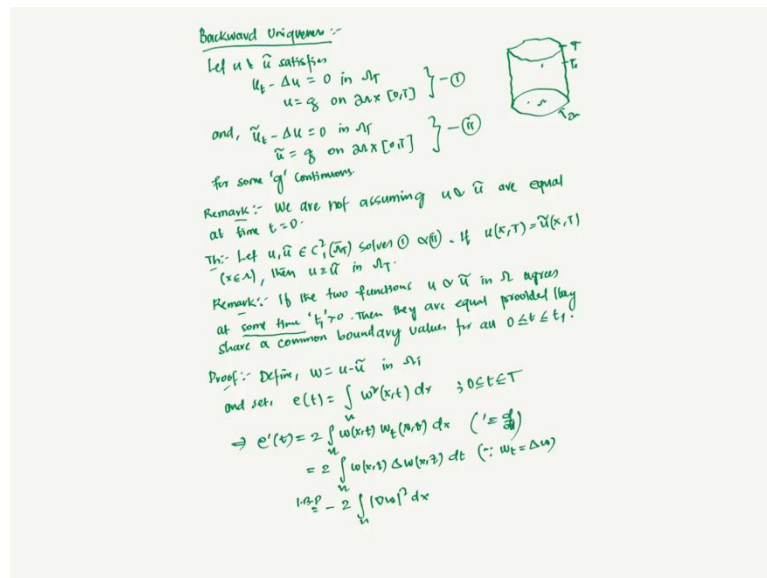 Backward Uniqueness :-
Let u & ũ satisfies
u_t - Δu = 0 in Ω_T
u = g on ∂Ω x [0,T] } - ①
and, ũ_t - Δũ = 0 in Ω_T
ũ = g on ∂Ω x [0,T] } - ⑪
for some 'g' continuous.
Remark :- We are not assuming u & ũ are equal
at time t=0.
Th :- Let u, ũ ∈ C²₁(Ω̄_T) solves ① & ⑪. If u(x,T) = ũ(x,T)
(x∈Ω), then u≡ũ in Ω_T.
Remark :- If the two functions u & ũ in Ω agrees
at some time 't₁'>0. Then they are equal provided they
share a common boundary values for all 0≤t≤t₁.
Proof :- Define, w = u-ũ in Ω_T
and set, e(t) = ∫_Ω w²(x,t) dx ; 0≤t≤T
⇒ e'(t) = 2 ∫_Ω w(x,t) w_t(x,t) dx ('= d/dt)
= 2 ∫_Ω w(x,t) Δw(x,t) dt (∵ w_t = Δw)
I.B.P = - 2 ∫_Ω |Dw|² dx
T
Ω